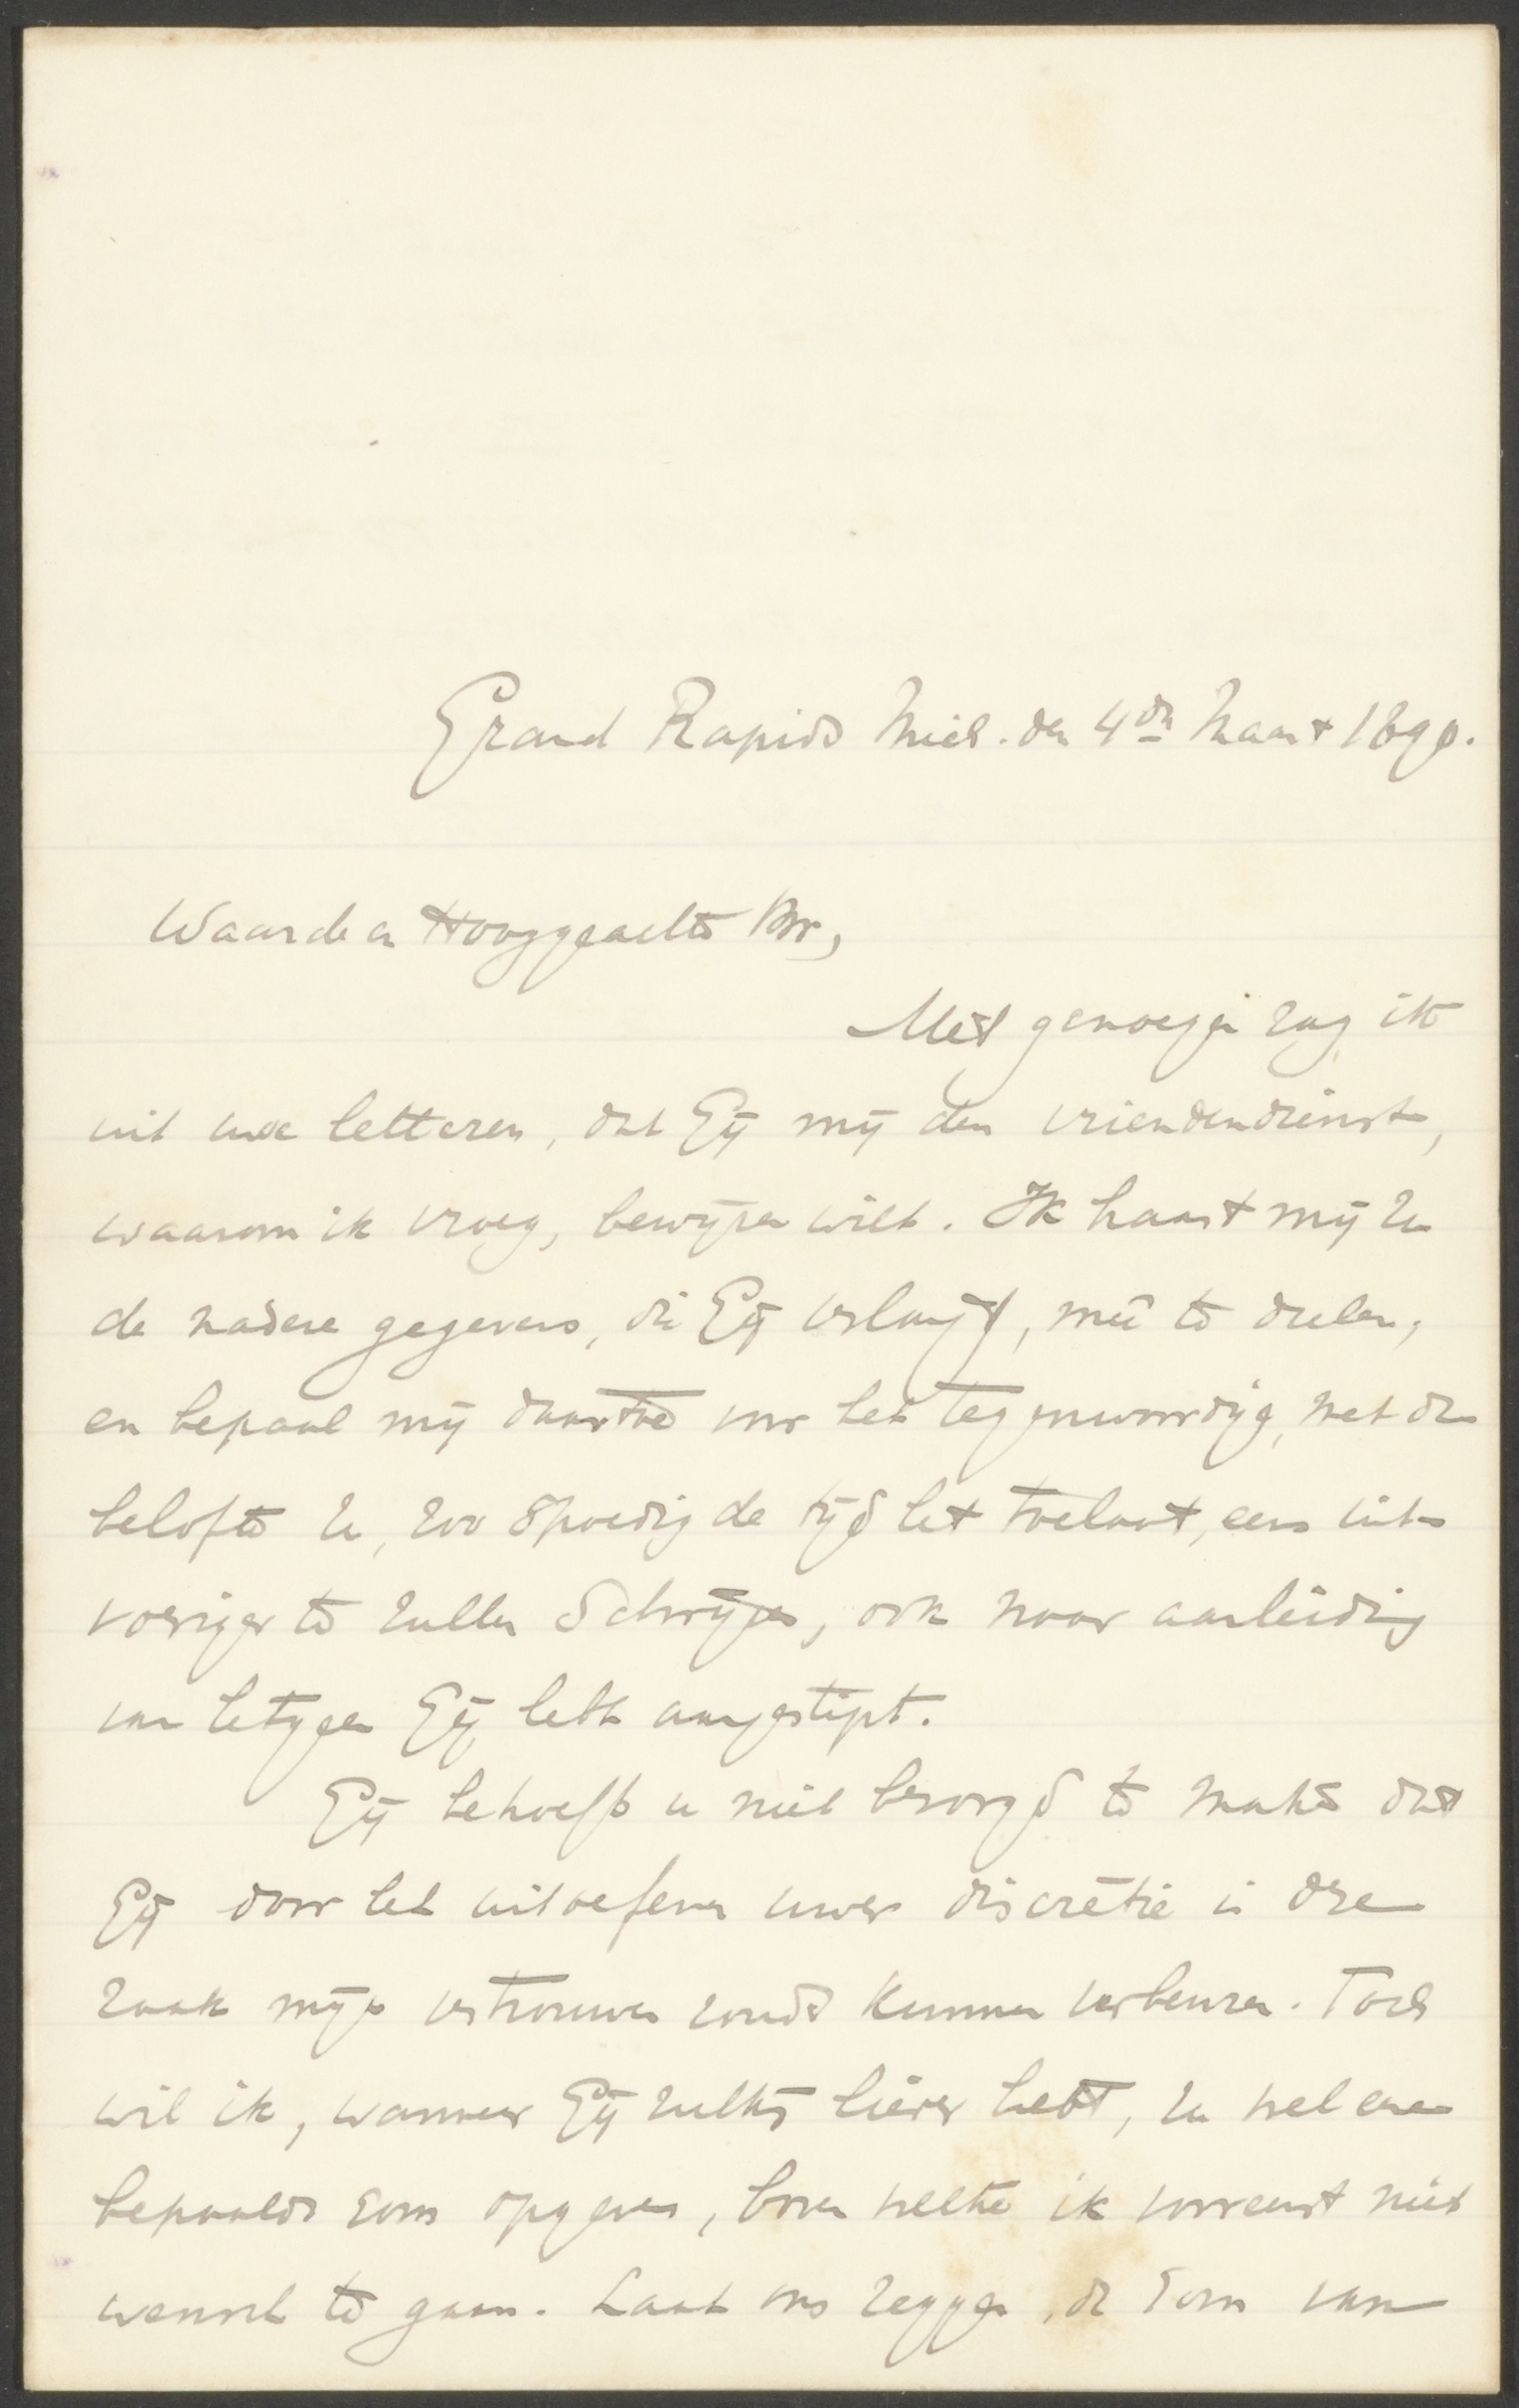 Grand Rapids Mich. den 4den Maart 1890.
Waarde en Hooggeachte Br,
Met genoegen zag ik
uit uwe letteren, dat Gij mij den vriendendienst,
waarom ik vroeg, bewijzen wilt. Ik haast mij U
de nadere gegevens, die Gij verlangt, meê te deelen,
en bepaal mij daartoe voor het tegenwoordige, met de
belofte U, zoo spoedig de tijd het toelaat, eens uit-
voeriger te zullen schrijven, ook naar aanleiding
van hetgeen Gij hebt aangestipt.
Gij behoeft u niet bezorgd te maken dat
Gij door het uitoefenen uwer discretie in deze
zaak mijn vertrouwen zoudt kunnen verbeuren. Toch
wil ik, wanneer Gij zulks liever hebt, U wel eene
bepaalde som opgeven, boven welke ik voreerst niet
wensch te gaan. Laat ons zeggen, de som van